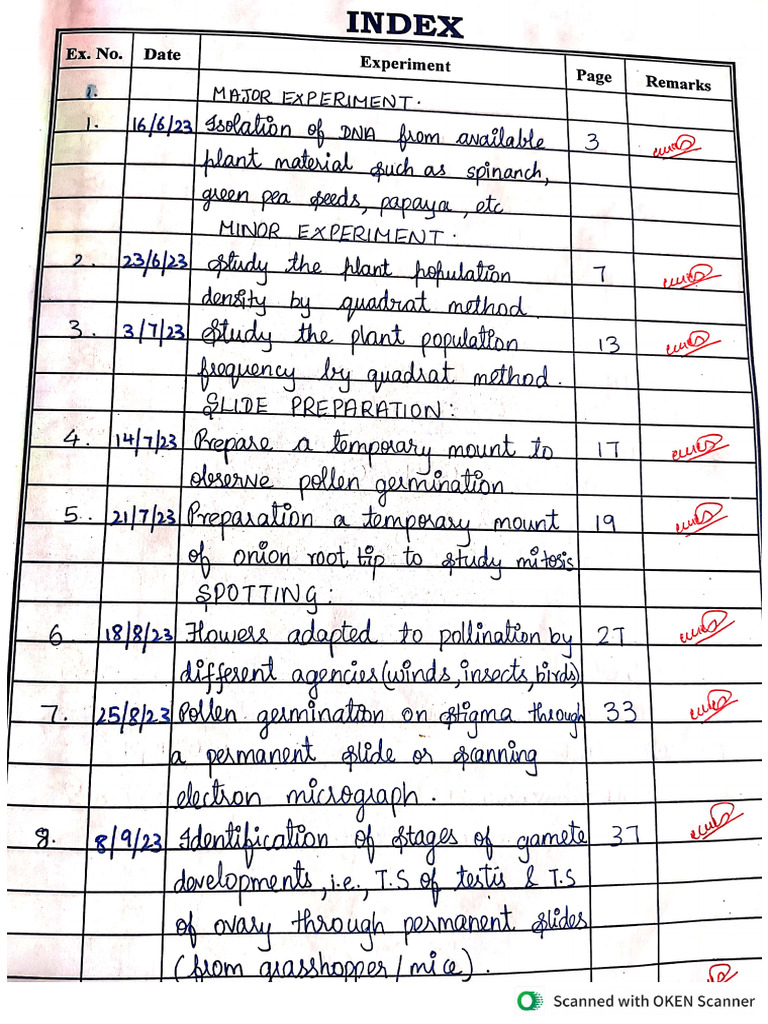 INDEX
Ex. No. Date Experiment Page Remarks
1. MAJOR EXPERIMENT.
1. 16/6/23 Isolation of DNA from available 3
plant material such as spinanch,
green pea seeds, papaya, etc
MINOR EXPERIMENT.
2. 23/6/23 Study the plant population 7
density by quadrat method.
3. 3/7/23 Study the plant population 13
frequency by quadrat method.
SLIDE PREPARATION:
4. 14/7/23 Prepare a temporary mount to 17
observe pollen germination
5. 21/7/23 Preparation a temporary mount 19
of onion root tip to study mitosis
SPOTTING:
6 18/8/23 Flowers adapted to pollination by 27
different agencies (winds, insects, birds)
7. 25/8/23 Pollen germination on stigma through 33
a permanent slide or scanning
electron micrograph.
8. 8/9/23 Identification of stages of gamete 37
developments, i.e., T.S of testis & T.S
of ovary through permanent slides
(from grasshopper/mice).
Scanned with OKEN Scanner